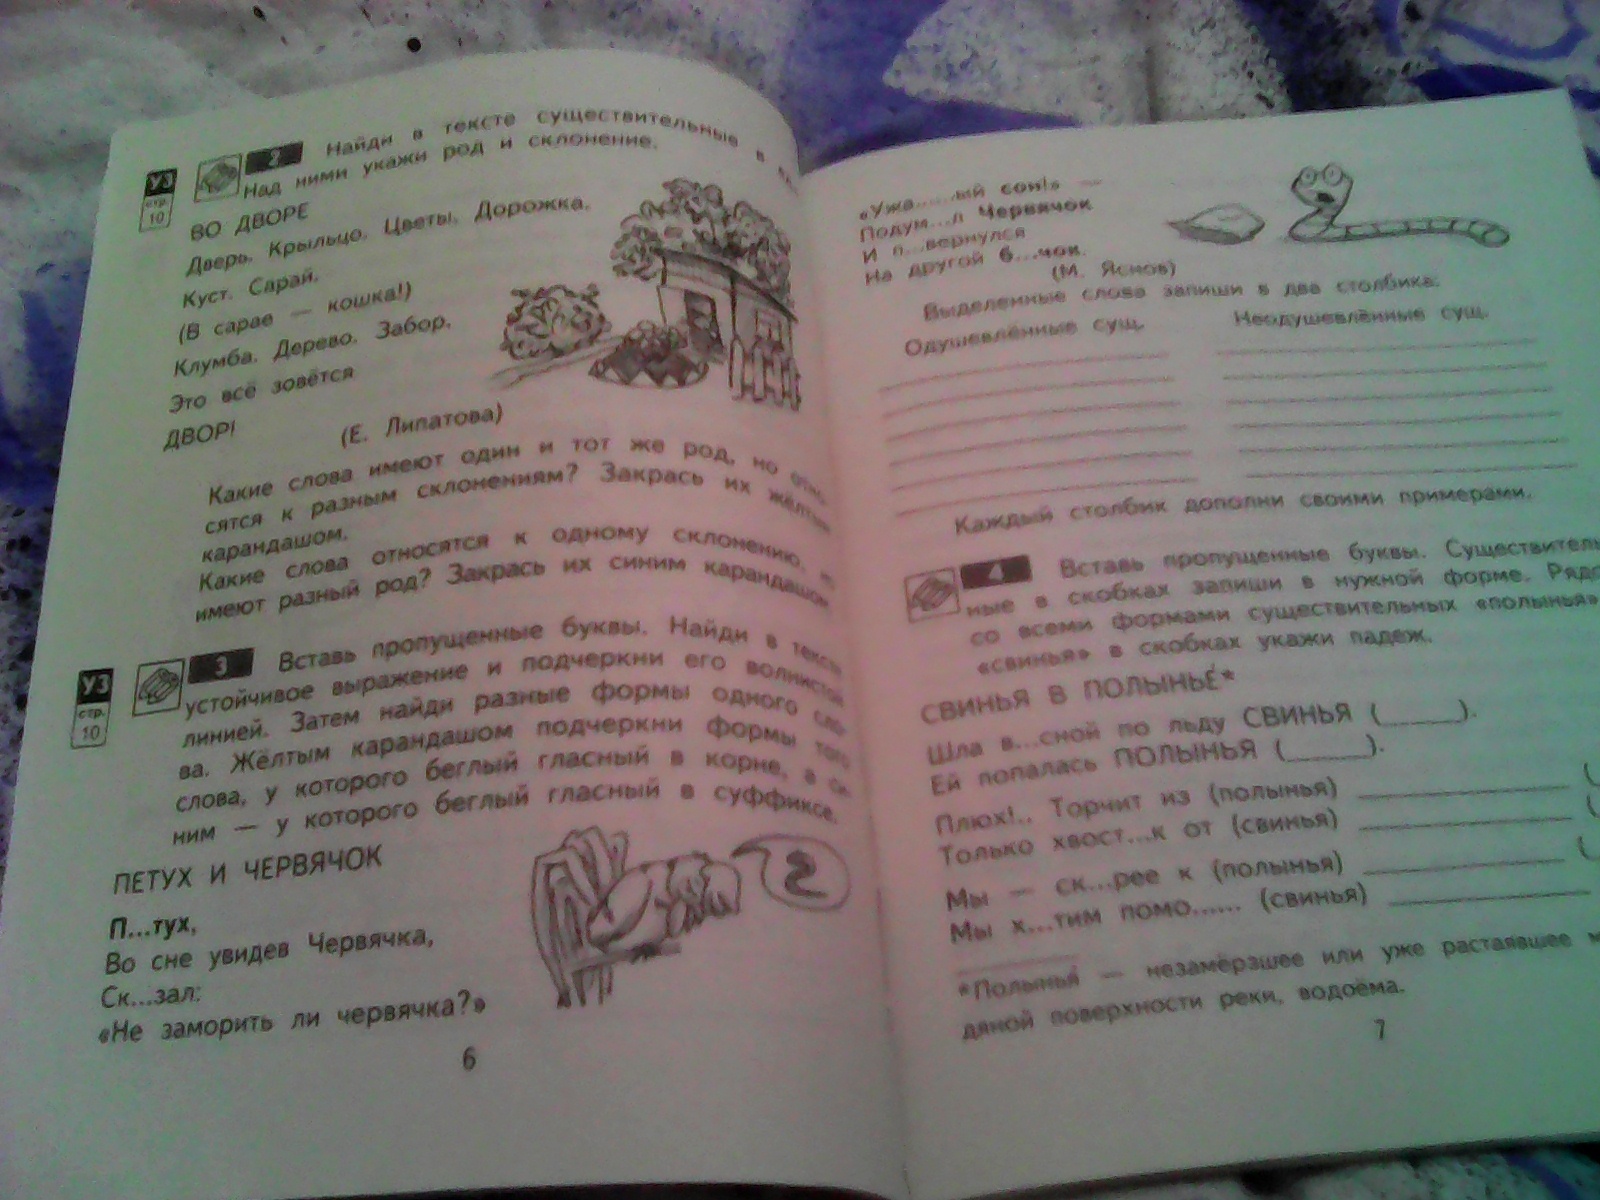 УЗ
стр.
10
2 Найди в тексте существительные в
Над ними укажи род и склонение.
ВО ДВОРЕ
Дверь. Крыльцо. Цветы. Дорожка.
Куст. Сарай.
(В сарае — кошка!)
Клумба. Дерево. Забор.
Это всё зовётся
ДВОР!
(Е. Липатова)
Какие слова имеют один и тот же род, но отно-
сятся к разным склонениям? Закрась их жёлтым
карандашом.
Какие слова относятся к одному склонению,
имеют разный род? Закрась их синим карандашом
УЗ
стр.
10
3 Вставь пропущенные буквы. Найди в тексте
устойчивое выражение и подчеркни его волнистой
линией. Затем найди разные формы одного сло-
ва. Жёлтым карандашом подчеркни формы того
слова, у которого беглый гласный в корне, а си-
ним — у которого беглый гласный в суффиксе.
ПЕТУХ И ЧЕРВЯЧОК
П...тух,
Во сне увидев Червячка,
Ск...зал:
«Не заморить ли червячка?»
6
«Ужа......ый сон!» —
Подум...л Червячок
И п...вернулся
На другой б...чок.
(М. Яснов)
Выделенные слова запиши в два столбика.
Одушевлённые сущ. Неодушевлённые сущ.
Каждый столбик дополни своими примерами.
4 Вставь пропущенные буквы. Существитель-
ные в скобках запиши в нужной форме. Рядо
со всеми формами существительных «полынья»
«свинья» в скобках укажи падеж.
СВИНЬЯ В ПОЛЫНЬЕ*
Шла в...сной по льду СВИНЬЯ (_____).
Ей попалась ПОЛЫНЬЯ (______).
Плюх!.. Торчит из (полынья) ____________ (
Только хвост...к от (свинья) ____________ (
Мы — ск...рее к (полынья) ____________ (
Мы х...тим помо...... (свинья) ____________
*Полынья — незамёрзшее или уже растаявшее
дяной поверхности реки, водоёма.
7